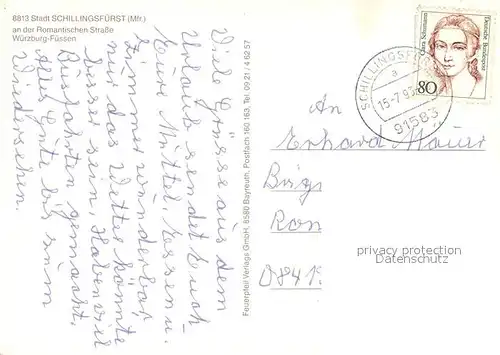 8813 Stadt SCHILLINGSFÜRST (Mfr.)
an der Romantischen Straße
Würzburg-Füssen
Viele Grüsse aus dem
Urlaub sendet Euch
Eure Mutter. Essen u.
Zimmer wunderbar
nur das Wetter könnte
besser sein. Haben viel
Busfahrten gemacht.
Alles Gute bis zum
Wiedersehen.
Feuerpfeil Verlags GmbH, 8580 Bayreuth, Postfach 160 163, Tel. 09 21 / 4 62 57
Clara Schumann
Deutsche Bundespost
80
SCHILLINGSFÜRST
a
15-7.93
91583
An
Erhard
privacy protection
Datenschutz